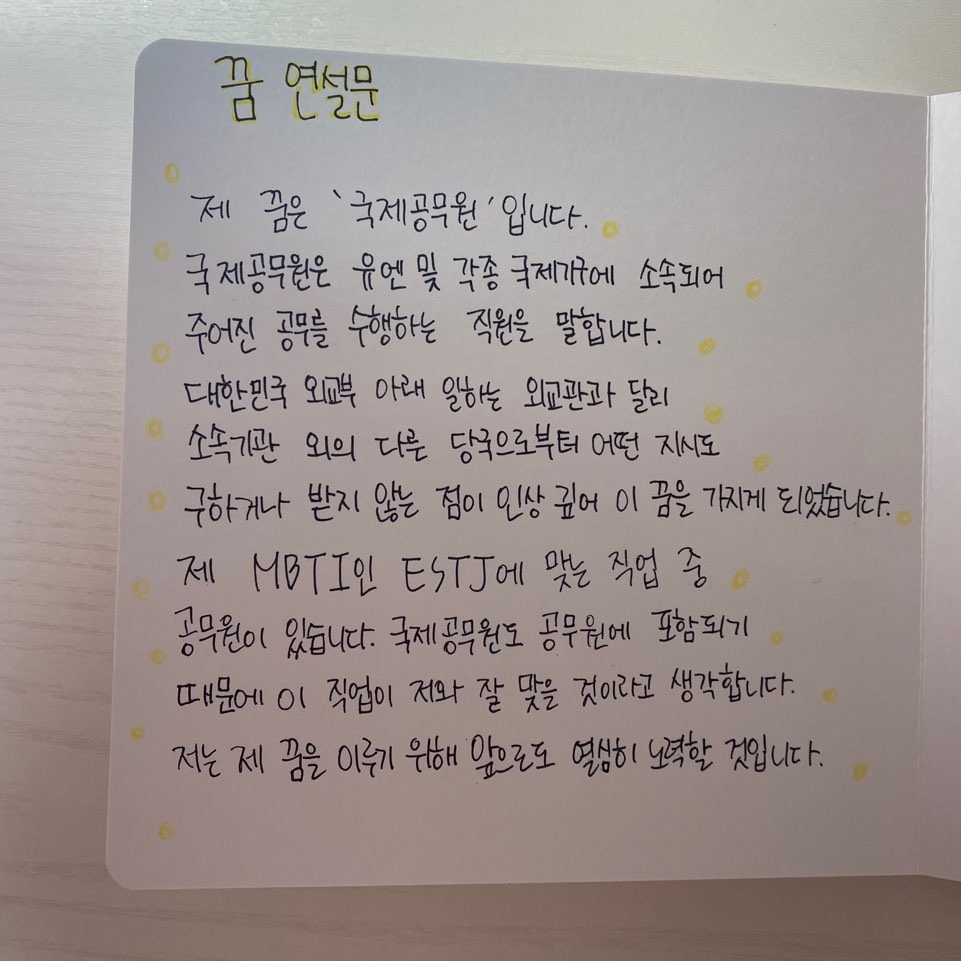 꿈 연설문
제 꿈은 '국제공무원'입니다.
국제공무원은 유엔 및 각종 국제기구에 소속되어
주어진 공무를 수행하는 직원을 말합니다.
대한민국 외교부 아래 일하는 외교관과 달리
소속기관 외의 다른 당국으로부터 어떤 지시도
구하거나 받지 않는 점이 인상 깊어 이 꿈을 가지게 되었습니다.
제 MBTI인 ESTJ에 맞는 직업 중
공무원이 있습니다. 국제공무원도 공무원에 포함되기
때문에 이 직업이 저와 잘 맞을 것이라고 생각합니다.
저는 제 꿈을 이루기 위해 앞으로도 열심히 노력할 것입니다.